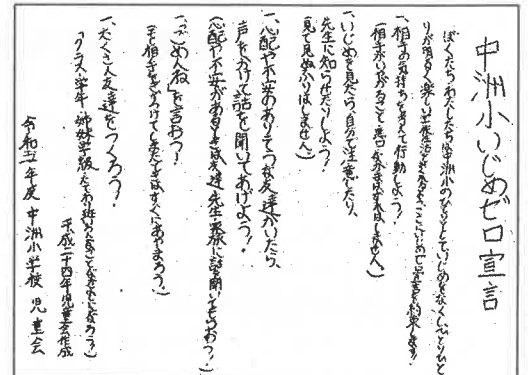 中洲小いじめゼロ宣言
ぼくたち・わたしたちは中洲小のひとりとして、いじめをなくし、ひとりひと
りが明るく楽しい学校生活を送れるように、ここにいじめゼロ宣言を約束します。
一、相手の気持ちを考えて行動しよう！
（相手がいやがること、悪口、なかまはずれはしません。）
一、いじめを見たら、自分で注意したり、
先生に知らせたりしよう！
（見て見ぬふりはしません。）
一、心配や不安のありそうな友達がいたら、
声をかけて話を聞いてあげよう！
（心配や不安があるときは、友達、先生、家族に話を聞いてもらおう！）
一、「ごめんね」を言おう！
（もし相手をきずつけてしまったときはすぐにあやまろう。）
一、たくさん友達をつくろう！
（クラス・学年・姉妹学級・たてわり班の
平成二十四年児童会作成
令和二年度 中洲小学校 児童会